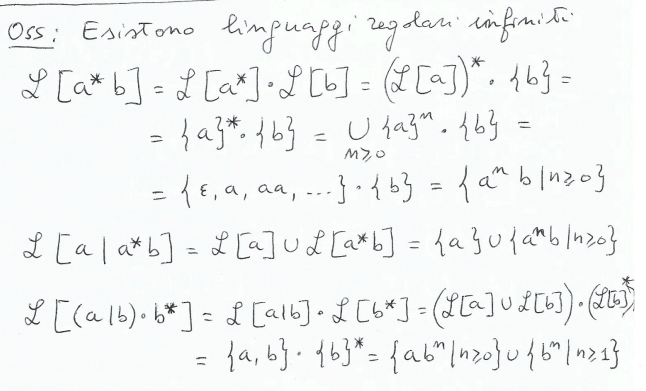 Oss: Esistono linguaggi regolari infiniti
ℒ[a*b] = ℒ[a*]·ℒ[b] = (ℒ[a])*·{b} =
= {a}*·{b} = ∪ {a}ⁿ·{b} =
n≥0
= {ε, a, aa, ...}·{b} = {aⁿ b | n≥0}
ℒ[a | a*b] = ℒ[a] ∪ ℒ[a*b] = {a} ∪ {aⁿb | n≥0}
ℒ[(a|b)·b*] = ℒ[a|b]·ℒ[b*] = (ℒ[a] ∪ ℒ[b])·(ℒ[b])*
= {a, b}·{b}* = {abⁿ | n≥0} ∪ {bⁿ | n≥1}